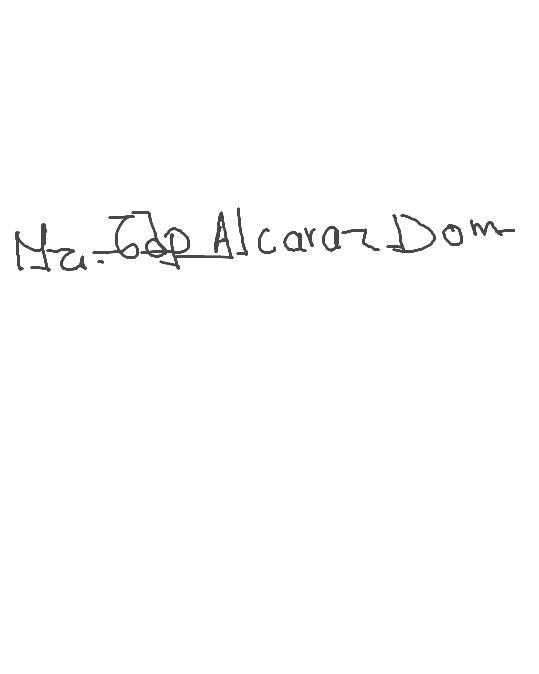 Ma. Gdp Alcaraz Dom